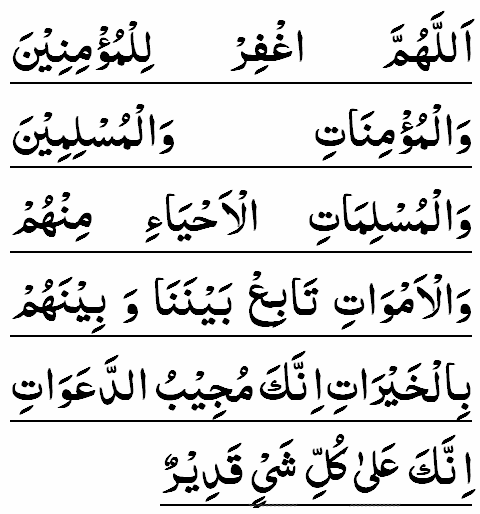 اَللّٰهُمَّ اغْفِرْ لِلْمُؤْمِنِيْنَ
وَالْمُؤْمِنَاتِ وَالْمُسْلِمِيْنَ
وَالْمُسْلِمَاتِ الْاَحْيَاءِ مِنْهُمْ
وَالْاَمْوَاتِ تَابِعْ بَيْنَنَا وَ بِيْنَهُمْ
بِالْخَيْرَاتِ اِنَّكَ مُجِيْبُ الدَّعَوَاتِ
اِنَّكَ عَلىٰ كُلِّ شَيْیٍ قَدِيْرٌ